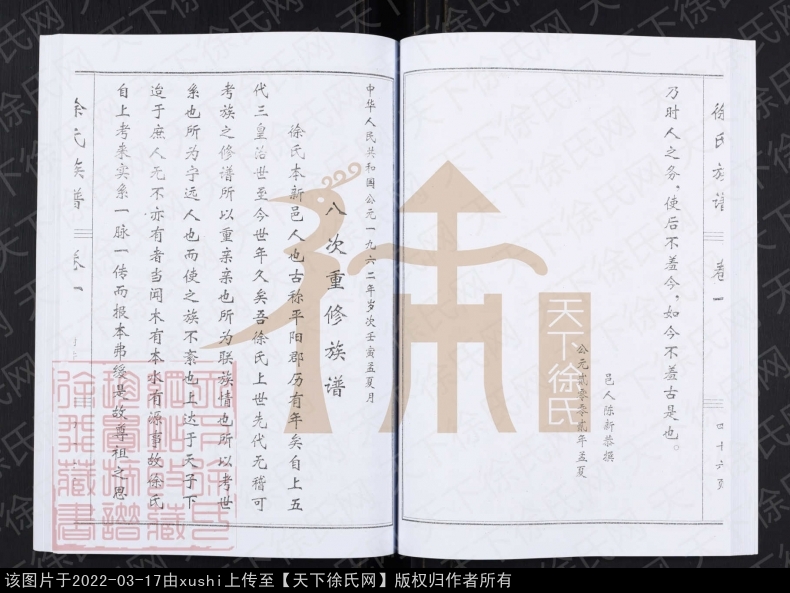 徐氏族谱 卷一 四十六页
乃时人之务，使后不羞今，如今不羞古是也。
邑人陈新恭撰
公元贰零零贰年孟夏
中华人民共和国公元一九六二年岁次壬寅孟夏月
八次重修族谱
徐氏本新邑人也古称平阳郡历有年矣自上五
代三皇治世至今世年久矣吾徐氏上世先代无稽可
考族之修谱所以重亲亲也所为联族情也所以考世
系也所为宁远人也而使之族不紊也上达于天子下
迨于庶人无不亦有者当闻木有本水有源事故徐氏
自上考来实系一脉一传而报本弗绥是故尊祖之思
徐氏族谱 卷一
天下徐氏
天下徐氏网
该图片于2022-03-17由xushi上传至【天下徐氏网】版权归作者所有